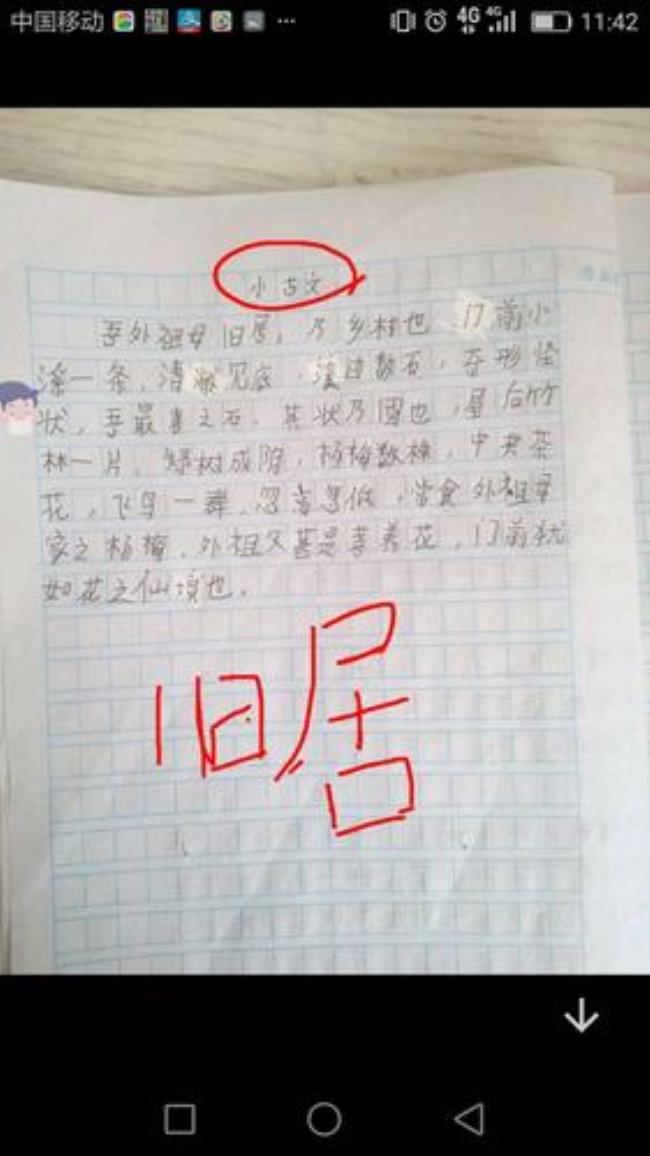 中国移动 4G 4G 11:42
小古文
吾外祖母旧居，乃乡村也，门前小
溪一条，清澈见底，溪过数石，奇形怪
状，吾最喜之石，其状乃圆也，屋后竹
林一片，绿树成阴，杨梅数棵，中央茶
花，飞鸟一群，忽高忽低，常食外祖母
家之杨梅，外祖父甚是喜养花，门前犹
如花之仙境也。
旧居